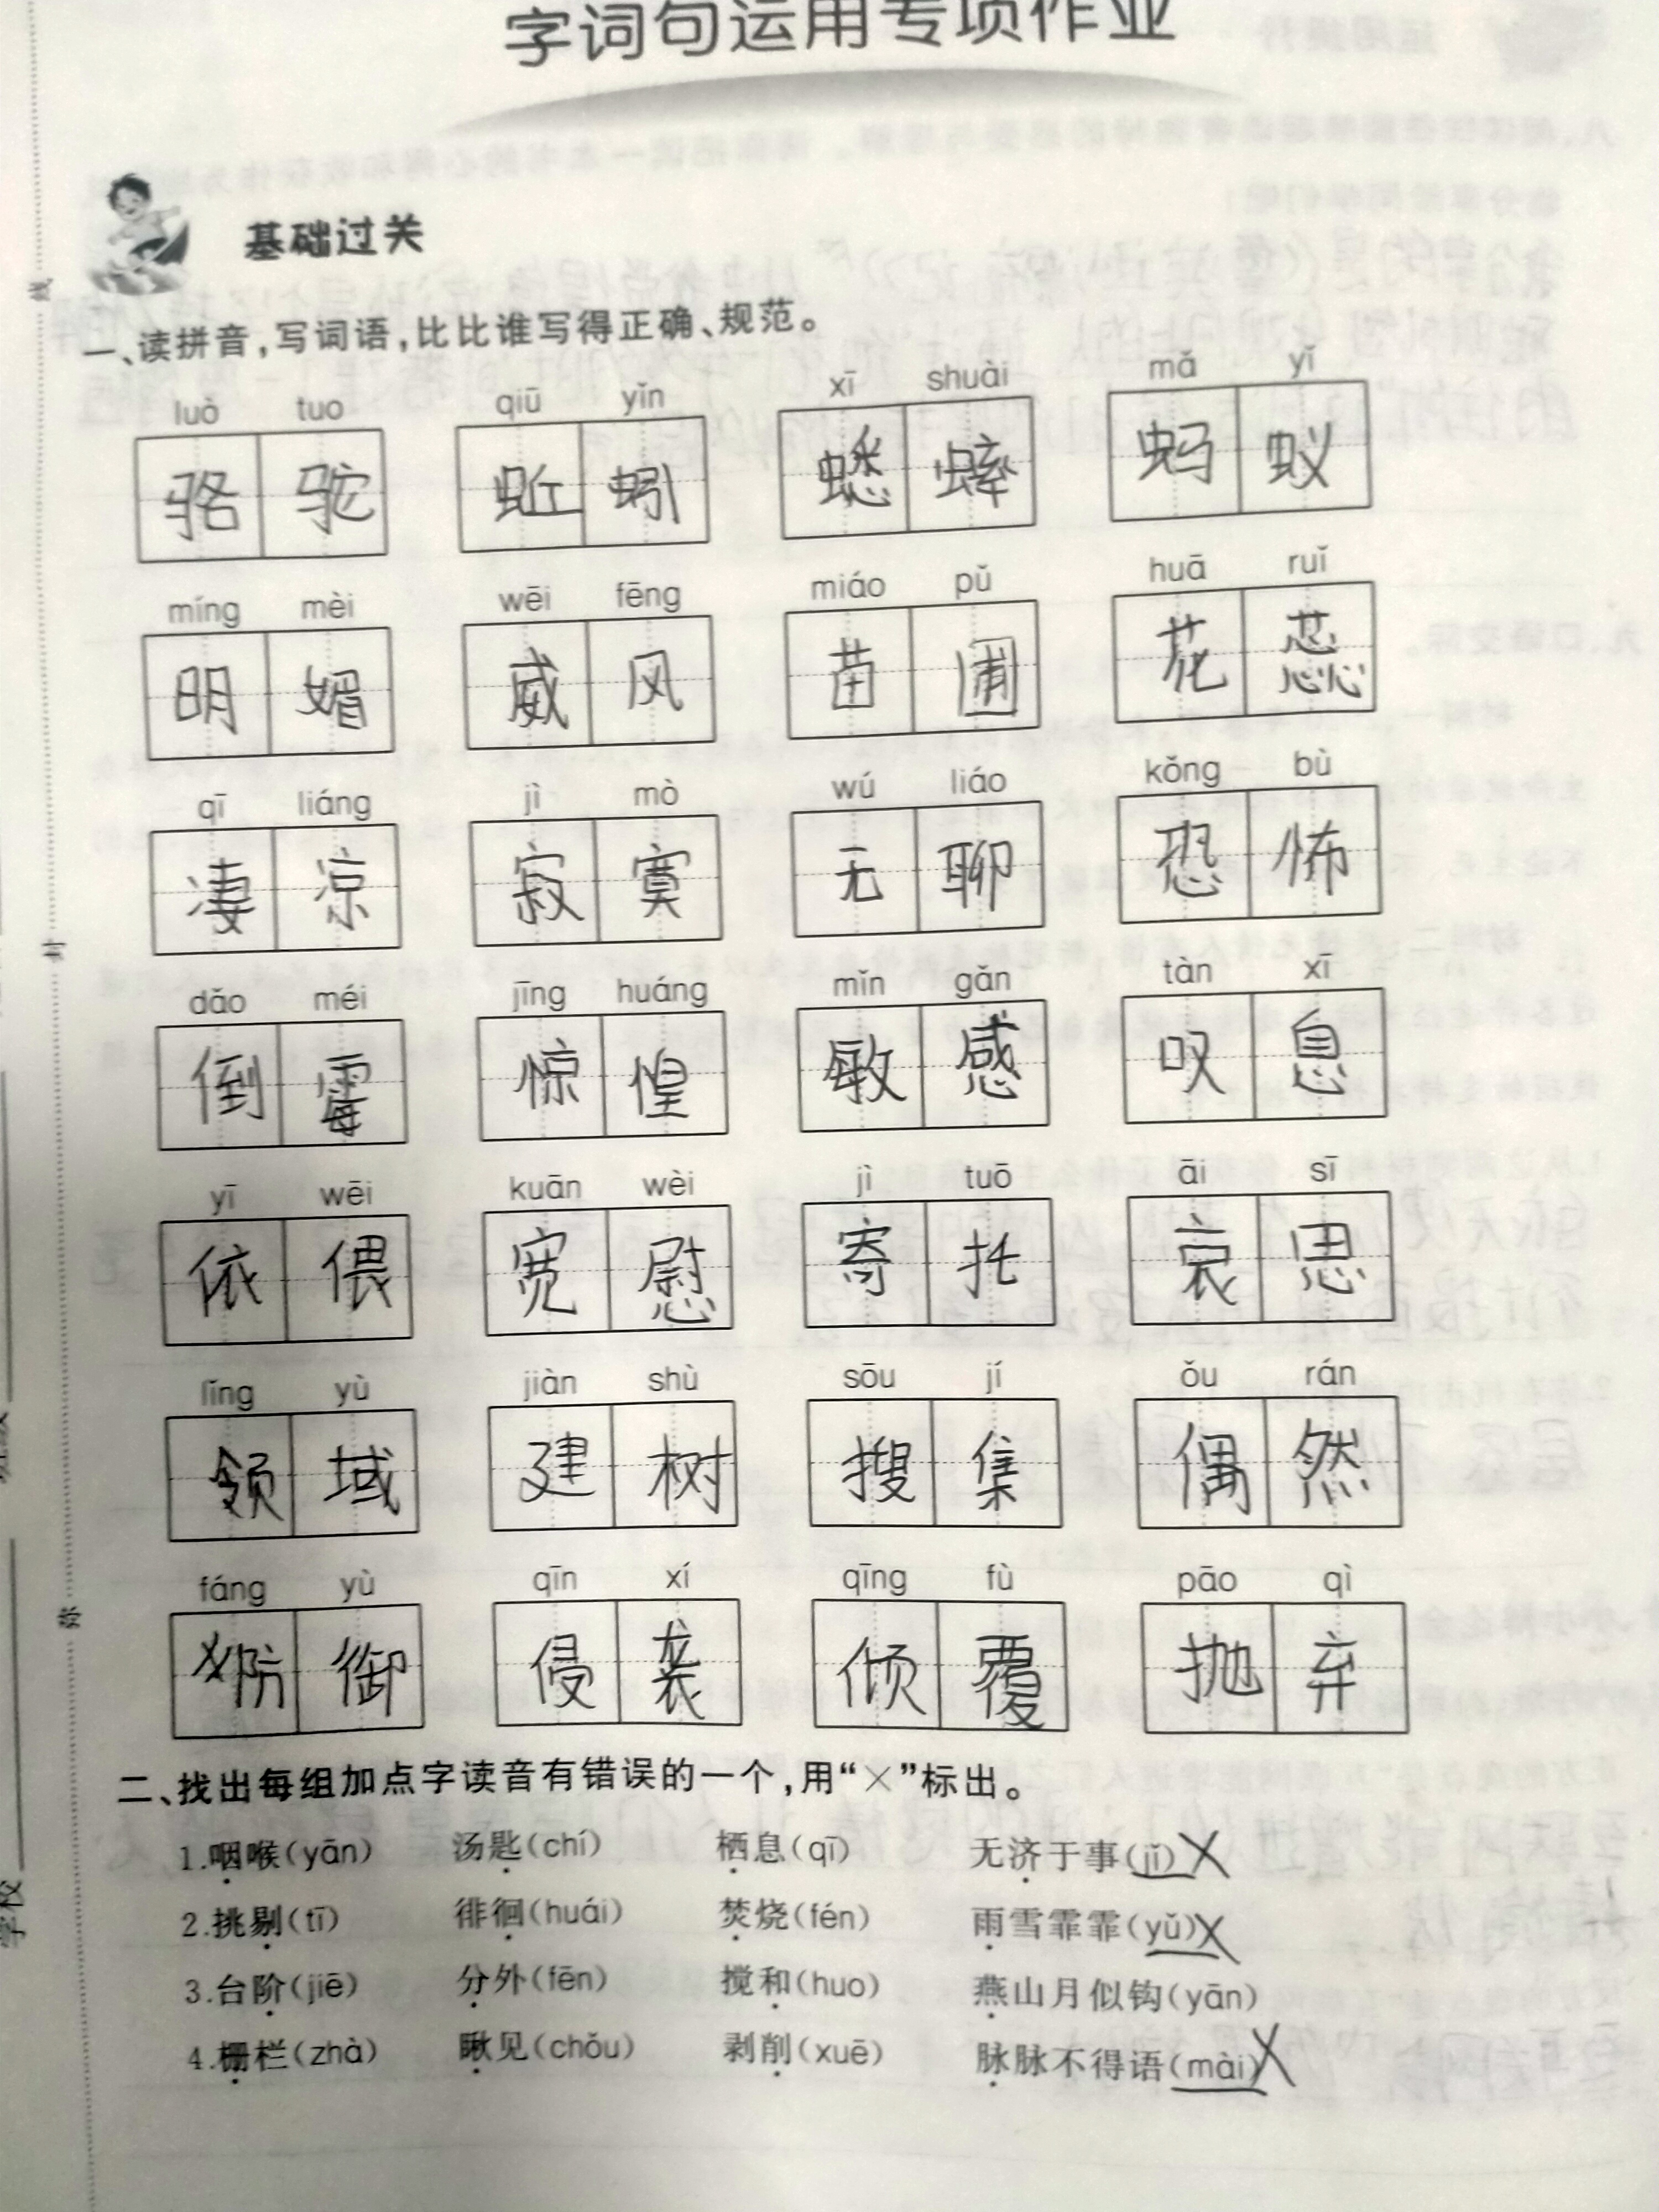 字词句运用专项作业
基础过关
一、读拼音,写词语,比比谁写得正确、规范。
luò tuo qiū yǐn xī shuài mǎ yǐ
骆驼 蚯蚓 蟋蟀 蚂蚁
míng mèi wēi fēng miáo pǔ huā ruǐ
明媚 威风 苗圃 花蕊
qī liáng jì mò wú liáo kǒng bù
凄凉 寂寞 无聊 恐怖
dǎo méi jīng huáng mǐn gǎn tàn xī
倒霉 惊惶 敏感 叹息
yī wēi kuān wèi jì tuō āi sī
依偎 宽慰 寄托 哀思
lǐng yù jiàn shù sōu jí ǒu rán
领域 建树 搜集 偶然
fáng yù qīn xí qīng fù pāo qì
防御 侵袭 倾覆 抛弃
二、找出每组加点字读音有错误的一个,用“×”标出。
1.咽喉(yān) 汤匙(chí) 栖息(qī) 无济于事(jǐ)×
2.挑剔(tī) 徘徊(huái) 焚烧(fén) 雨雪霏霏(yǔ)×
3.台阶(jiē) 分外(fēn) 搅和(huo) 燕山月似钩(yān)
4.栅栏(zhà) 瞅见(chǒu) 剥削(xuē) 脉脉不得语(mài)×
线
封
弥
学校